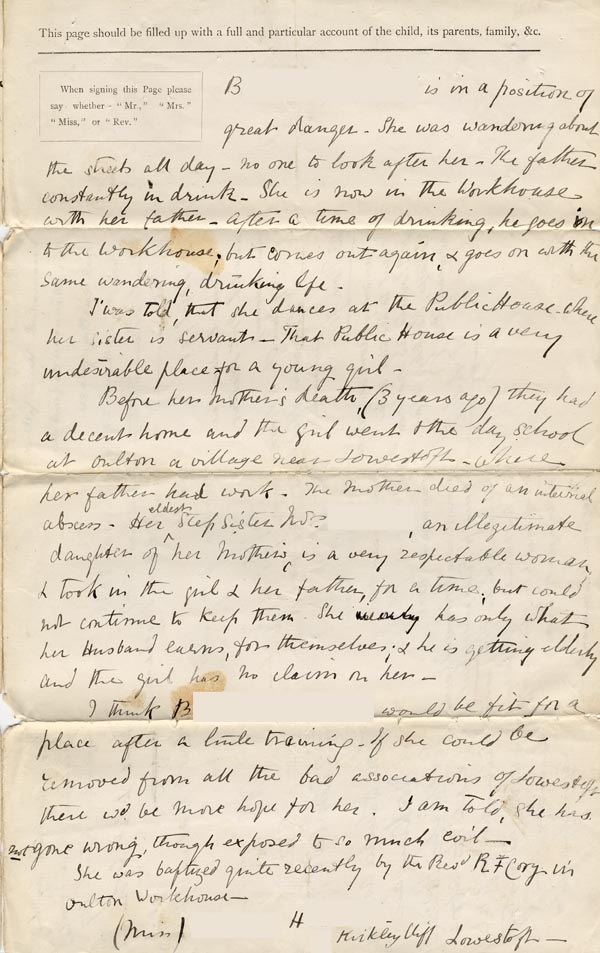 This page should be filled up with a full and particular account of the child, its parents, family, &c.
When signing this Page please
say whether - "Mr.," "Mrs."
"Miss," or "Rev."
B is in a position of
great danger - She was wandering about
the streets all day - no one to look after her - The father
constantly in drink - She is now in the Workhouse
with her father - After a time of drinking, he goes in
to the Workhouse, but comes out again, & goes on with the
same wandering, drinking life -
I was told, that she dances at the Public House - where
her sister is servant - That Public House is a very
undesirable place for a young girl -
Before her mother's death, (3 years ago) they had
a decent home and the girl went to the day school
at Oulton a village near Lowestoft - where
her father had work - The Mother died of an internal
absess - Her eldest Step Sister Mrs. , an illegitimate
daughter of her Mother's, is a very respectable woman,
& took in the girl & her father, for a time, but could
not continue to keep them. She has only what
her Husband earns, for themselves, & he is getting elderly
and the girl has no claim on her -
I think B would be fit for a
place after a little training - If she could be
removed from all the bad associations of Lowestoft
there wd be more hope for her. I am told, she has
not gone wrong, though exposed to so much evil -
She was baptized quite recently by the Revd R F Cory in
Oulton Workhouse -
(Miss) H Kirkley Cliff Lowestoft -